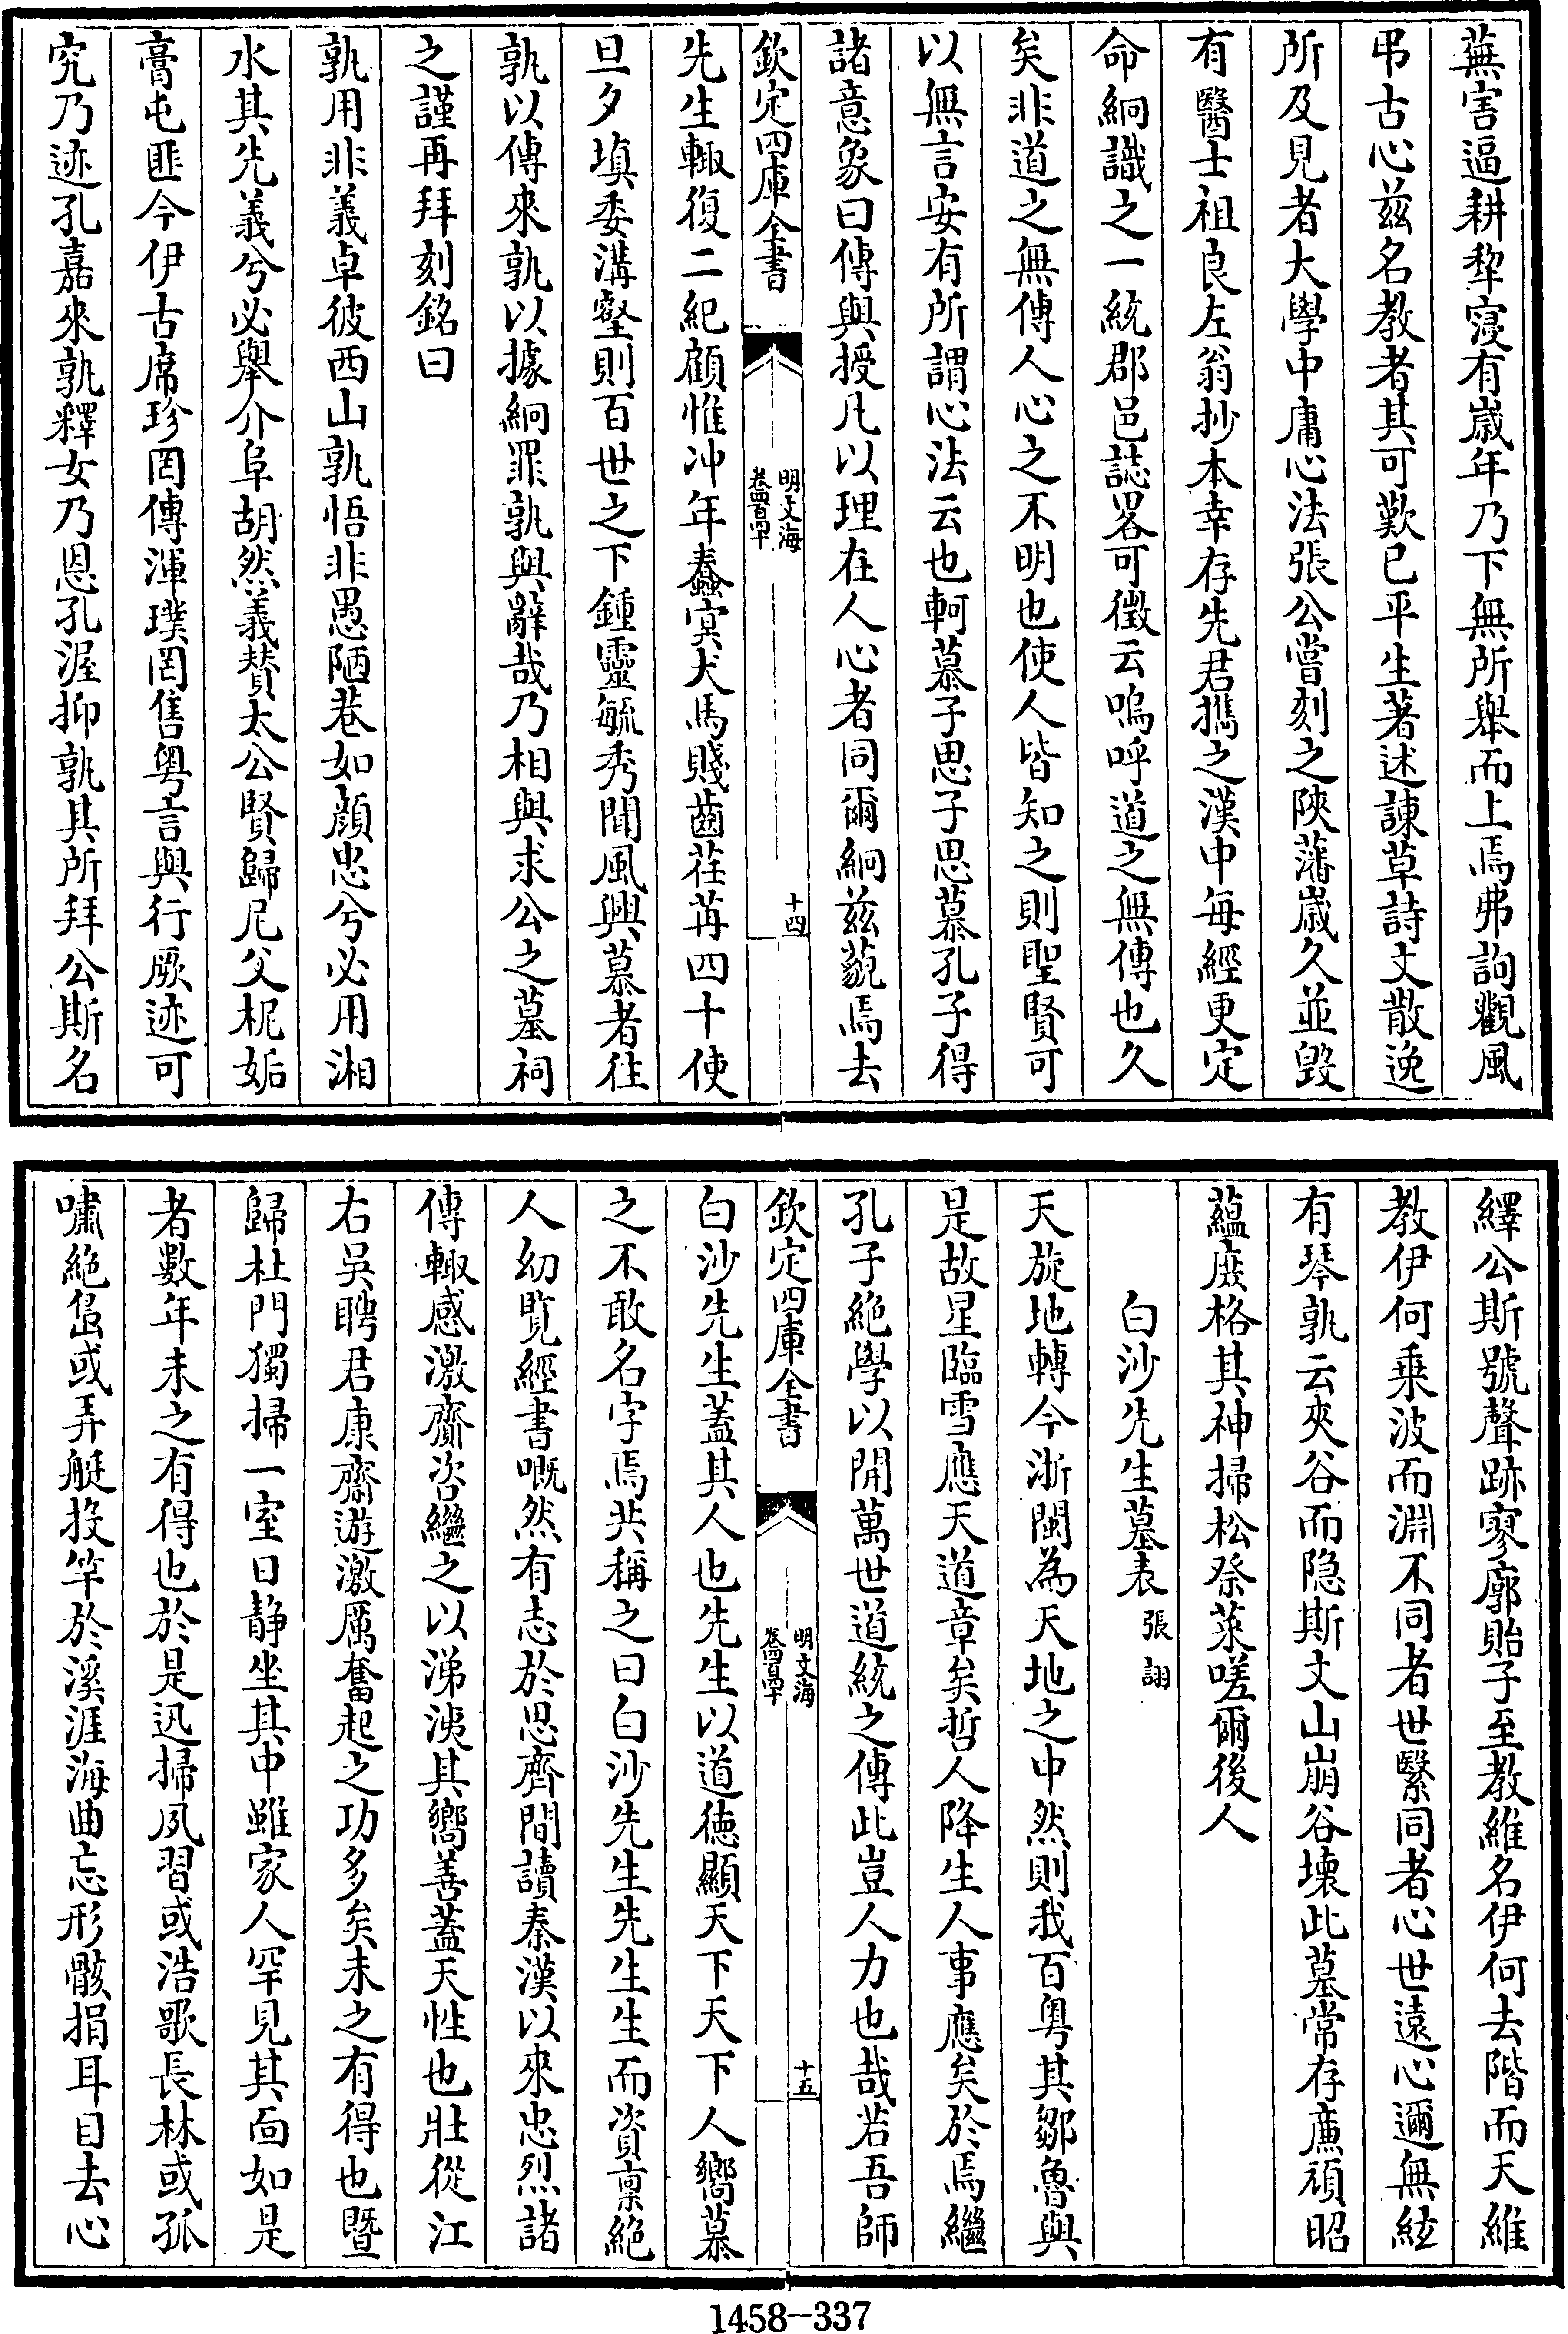 蕪害逼耕犂寖有歲年乃下無所舉而上焉弗詢觀風
弔古心兹名教者其可歎已平生著述諫草詩文散逸
所及見者大學中庸心法張公嘗刻之陜藩嵗久並毁
有醫士祖良左翁抄本幸存先君携之漢中每經更定
命絅識之一統郡邑誌畧可徵云嗚呼道之無傳也久
矣非道之無傳人心之不明也使人皆知之則聖賢可
以無言安有所謂心法云也軻慕子思子思慕孔子得
諸意象曰傳與授凡以理在人心者同爾絅兹藐焉去
欽定四庫全書
明文海
卷四百四十
十四
先生輙復二紀顧惟冲年蠢㝠犬馬賤齒荏苒四十使
旦夕填委溝壑則百世之下鍾靈毓秀聞風興慕者往
孰以傳來孰以據絅罪孰與辭哉乃相與求公之墓祠
之謹再拜刻銘曰
孰用非義卓彼西山孰悟非愚陋巷如顔忠兮必用湘
水其先義兮必舉介阜胡然義賛太公賢歸尼父柅姤
膏屯匪今伊古席珍罔傳渾璞罔售粤言與行厥迹可
究乃迹孔嘉來孰釋女乃恩孔渥抑孰其所拜公斯名
繹公斯號聲跡寥廓貽子至教維名伊何去階而天維
教伊何乗波而淵不同者世緊同者心世遠心邇無絃
有琴孰云夾谷而隐斯文山崩谷壊此墓常存亷頑昭
蘊庻格其神掃松祭菜嗟爾後人
白沙先生墓表 張詡
天旋地轉今浙閩為天地之中然則我百粤其鄒魯與
是故星臨雪應天道章矣哲人降生人事應矣於焉繼
孔子絶學以開萬世道統之傳此豈人力也哉若吾師
欽定四庫全書
明文海
卷四百四十
十五
白沙先生蓋其人也先生以道徳顯天下天下人嚮慕
之不敢名字焉共稱之曰白沙先生先生生而資禀絶
人幼覧經書嘅然有志於思齊間讀秦漢以來忠烈諸
傳輙感激齎咨繼之以涕洟其嚮善蓋天性也壯從江
右吳聘君康齋遊激厲奮起之功多矣未之有得也暨
歸杜門獨掃一室日静坐其中雖家人罕見其面如是
者數年未之有得也於是迅掃夙習或浩歌長林或孤
嘯絶㠀或弄艇投竿於溪涯海曲忘形骸捐耳目去心
1458-337